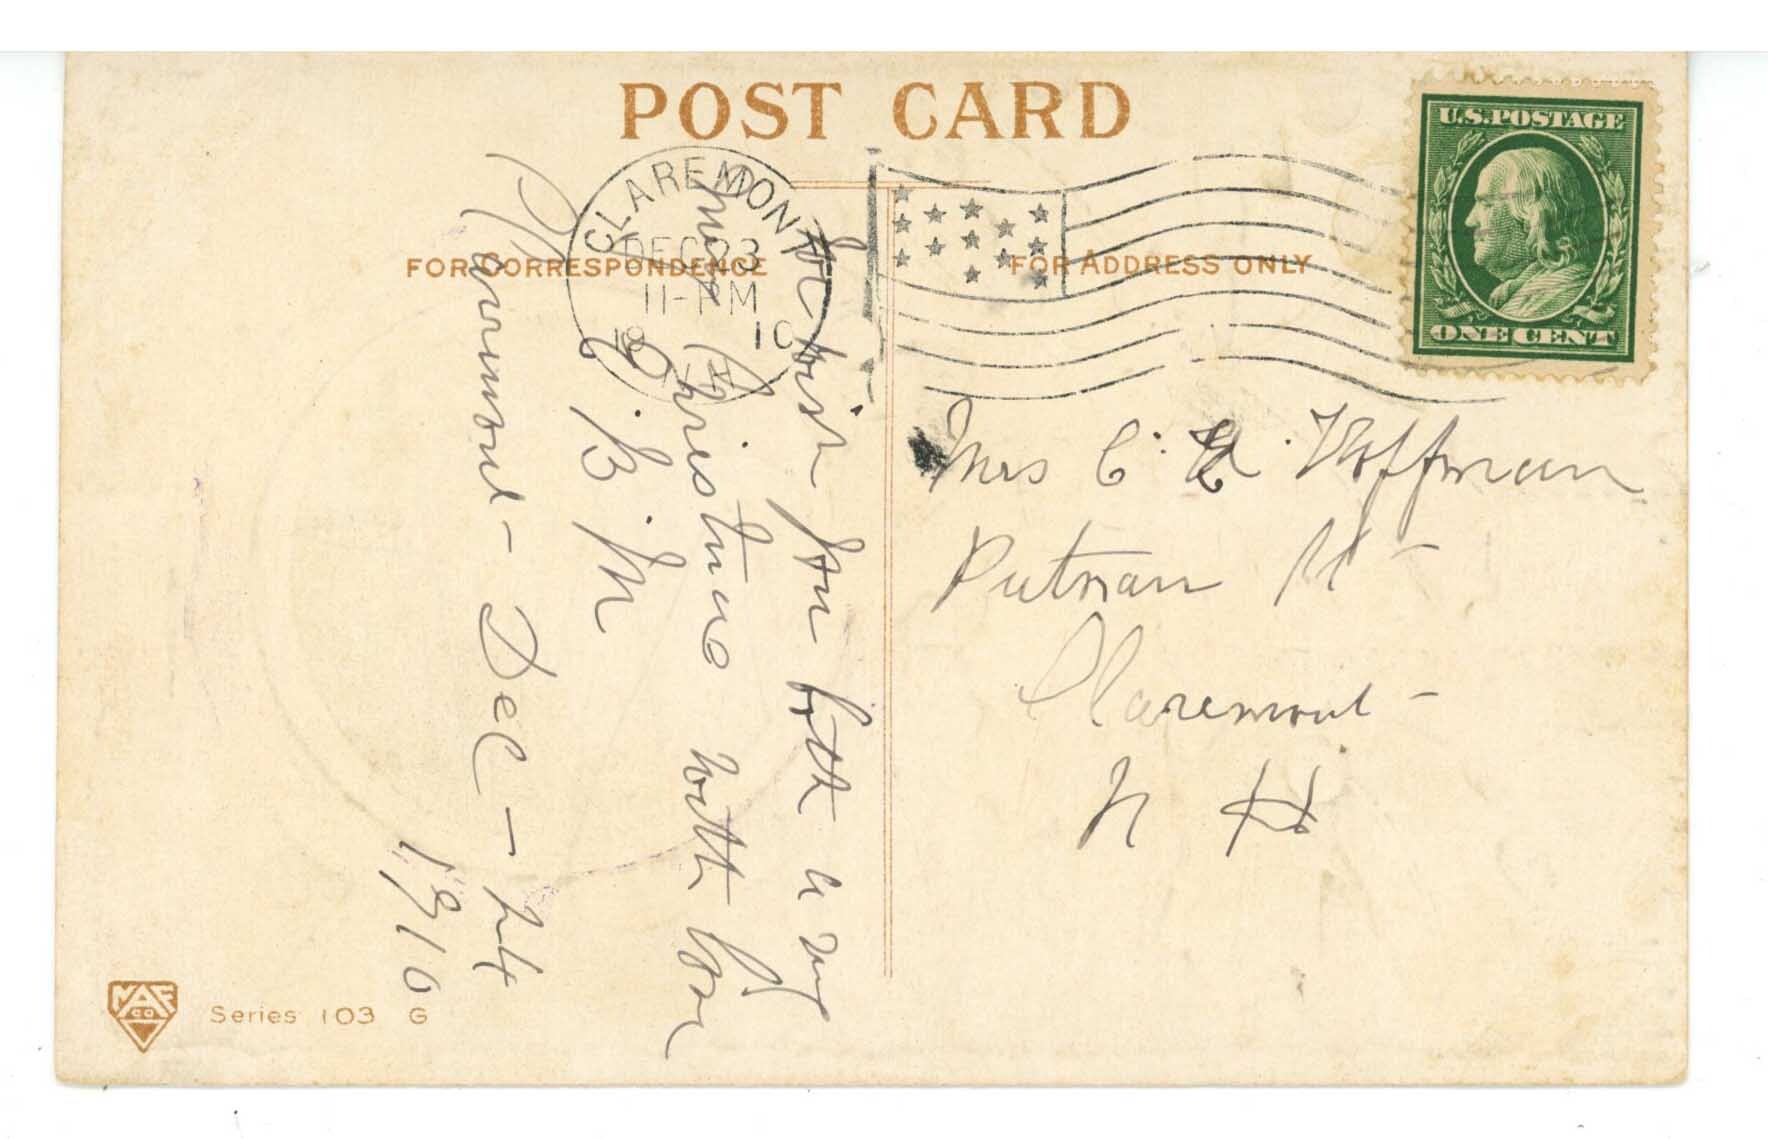 POST CARD
U.S. POSTAGE
ONE CENT
CLAREMONT
DEC 23
11-PM
1910
FOR CORRESPONDENCE
FOR ADDRESS ONLY
Mrs C. H. Hoffman
Putnam St -
Claremont -
N H
We wish you both a very
Merry Christmas with Love
B M
Claremont - Dec - 24
1910
Series 103 G